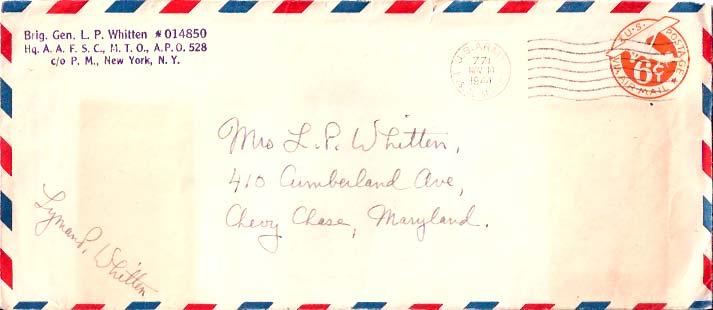 Brig. Gen. L. P. Whitten #014850
Hq. A. A. F. S. C., M. T. O., A. P. O. 528
c/o P. M., New York, N. Y.
U.S. ARMY
771
NOV 10
U.S. POSTAGE
6¢
VIA AIR MAIL
Mrs L. P. Whitten,
410 Cumberland Ave,
Chevy Chase, Maryland.
Lyman P. Whitten